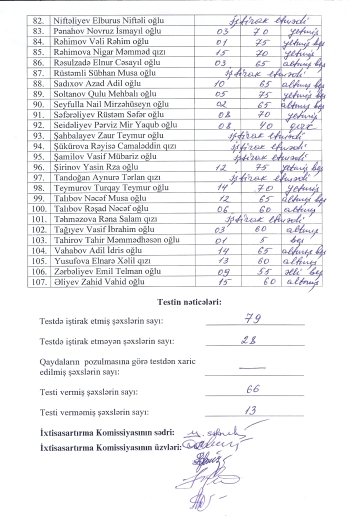 82. Niftəliyev Elburus Niftəli oğlu iştirak etmədi
83. Pənahov Novruz İsmayıl oğlu 03 70 yetmiş
84. Rəhimov Vəli Rəhim oğlu 01 75 yetmiş beş
85. Rəhimova Nigar Məmməd qızı iştirak etmədi
86. Rəsulzadə Elnur Cəsayıl oğlu 03 65 altmış beş
87. Rüstəmli Sübhan Musa oğlu iştirak etmədi
88. Sadıxov Azad Adil oğlu 10 65 altmış beş
89. Soltanov Qulu Mehbalı oğlu 05 75 yetmiş beş
90. Seyfulla Nail Mirzəhüseyn oğlu 02 65 altmış beş
91. Səfərəliyev Rüstəm Səfər oğlu 08 70 yetmiş
92. Seidəliyev Pərviz Mir Yaqub oğlu 08 40 qırx
93. Şahbalayev Zaur Teymur oğlu iştirak etmədi
94. Şükürova Rəyisə Camaləddin qızı iştirak etmədi
95. Şamilov Vasif Mübariz oğlu iştirak etmədi
96. Şirinov Yasin Rza oğlu 12 75 yetmiş beş
97. Tandoğan Aynurə Tərlan qızı iştirak etmədi
98. Teymurov Turqay Teymur oğlu 14 70 yetmiş
99. Talıbov Nəcəf Musa oğlu 12 65 altmış beş
100. Talıbov Rəşad Nəcəf oğlu 06 60 altmış
101. Təhməzova Rəna Salam qızı iştirak etmədi
102. Tağıyev Vasif İbrahim oğlu 03 60 altmış
103. Tahirov Tahir Məmmədhəsən oğlu 01 5 beş
104. Vahabov Adil İdris oğlu 14 65 altmış beş
105. Yusufova Elnarə Xəlil qızı 13 60 altmış
106. Zərbəliyev Emil Telman oğlu 09 55 əlli beş
107. Əliyev Zahid Vahid oğlu 15 60 altmış
Testin nəticələri:
Testdə iştirak etmiş şəxslərin sayı: 79
Testdə iştirak etməyən şəxslərin sayı: 28
Qaydaların pozulmasına görə testdən xaric
edilmiş şəxslərin sayı: —
Testi vermiş şəxslərin sayı: 66
Testi verməmiş şəxslərin sayı: 13
İxtisasartırma Komissiyasının sədri:
İxtisasartırma Komissiyasının üzvləri: